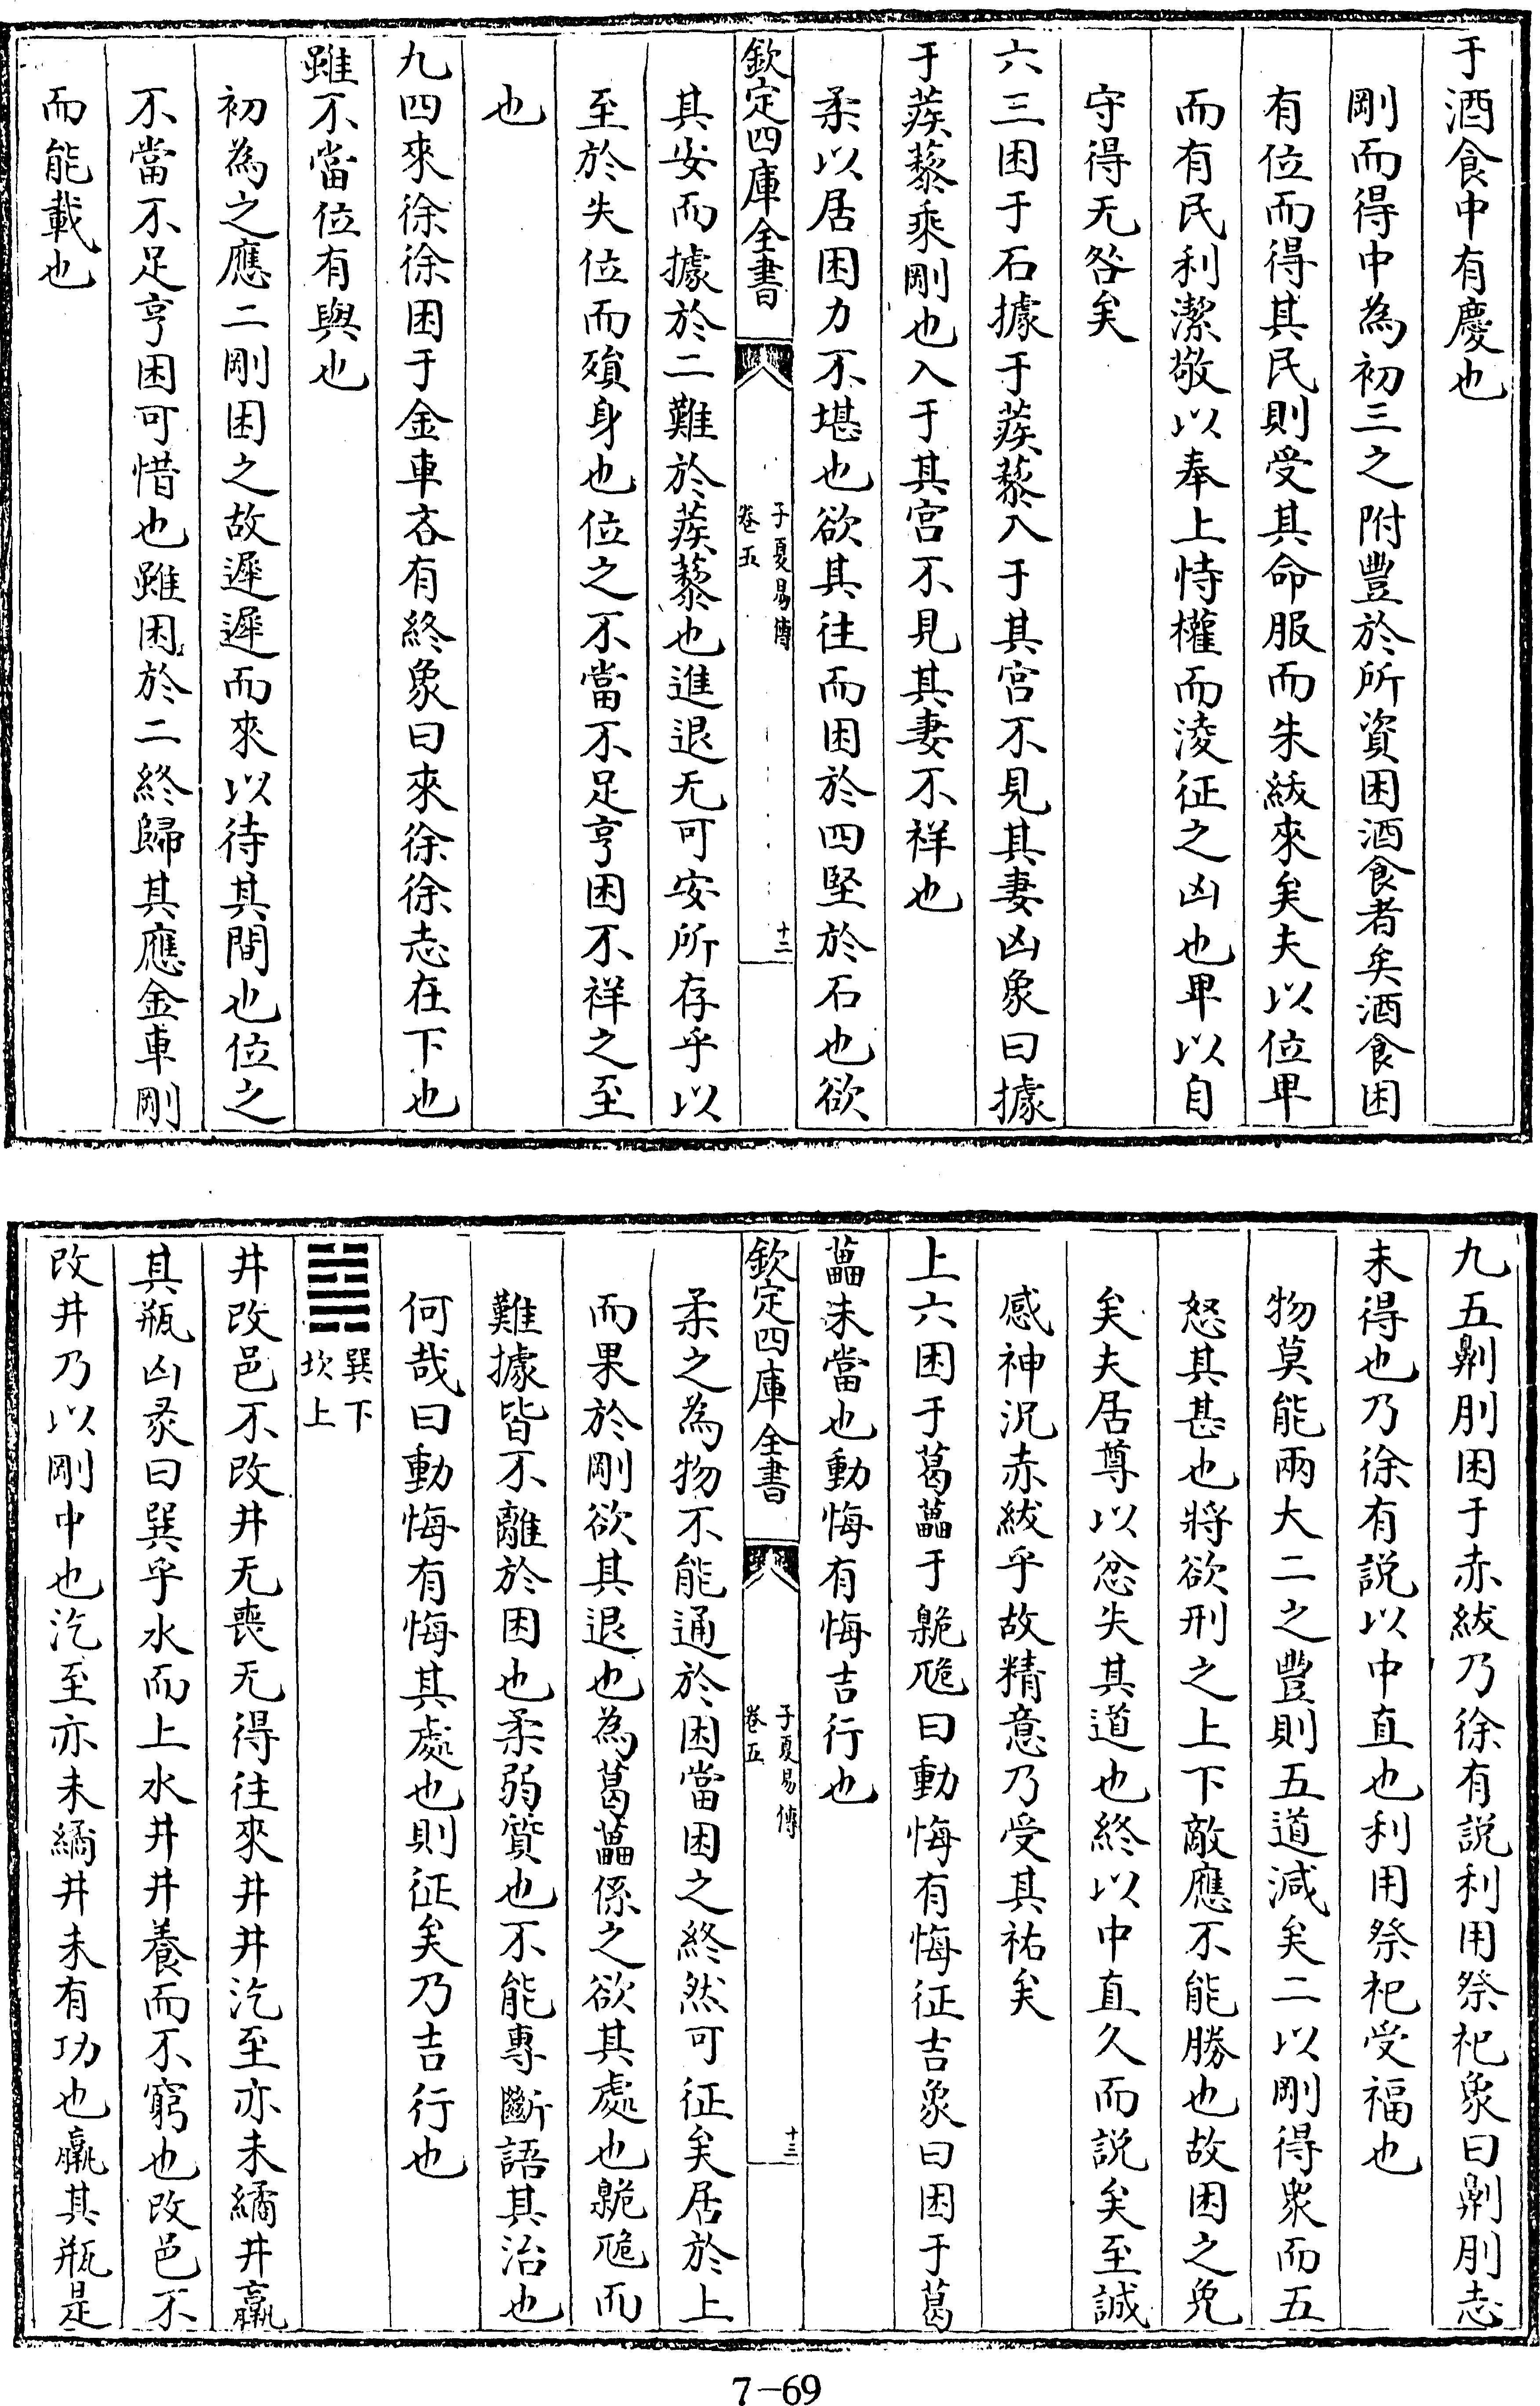 于酒食中有慶也
剛而得中為初三之附豐於所資困酒食者矣酒食困
有位而得其民則受其命服而朱紱來矣夫以位卑
而有民利潔敬以奉上恃權而淩征之凶也卑以自
守得无咎矣
六三困于石據于蒺藜入于其宫不見其妻凶象曰據
于蒺藜乘剛也入于其宫不見其妻不祥也
柔以居困力不堪也欲其往而困於四堅於石也欲
欽定四庫全書
子夏易傳
卷五
十二
其安而據於二難於蒺藜也進退无可安所存乎以
至於失位而殞身也位之不當不足亨困不祥之至
也
九四來徐徐困于金車吝有終象曰來徐徐志在下也
雖不當位有與也
初為之應二剛困之故遲遲而來以待其間也位之
不當不足亨困可惜也雖困於二終歸其應金車剛
而能載也
九五劓刖困于赤紱乃徐有説利用祭祀象曰劓刖志
未得也乃徐有説以中直也利用祭祀受福也
物莫能兩大二之豐則五道減矣二以剛得衆而五
怒其甚也將欲刑之上下敵應不能勝也故困之免
矣夫居尊以忿失其道也終以中直久而説矣至誠
感神況赤紱乎故精意乃受其祐矣
上六困于葛藟于臲卼曰動悔有悔征吉象曰困于葛
藟未當也動悔有悔吉行也
欽定四庫全書
子夏易傳
卷五
十三
柔之為物不能通於困當困之終然可征矣居於上
而果於剛欲其退也為葛藟係之欲其處也臲卼而
難據皆不離於困也柔弱質也不能專斷語其治也
何哉曰動悔有悔其處也則征矣乃吉行也
䷯巽下
坎上
井改邑不改井无喪无得往來井井汔至亦未繘井羸
其瓶凶彖曰巽乎水而上水井井養而不窮也改邑不
改井乃以剛中也汔至亦未繘井未有功也羸其瓶是
7-69